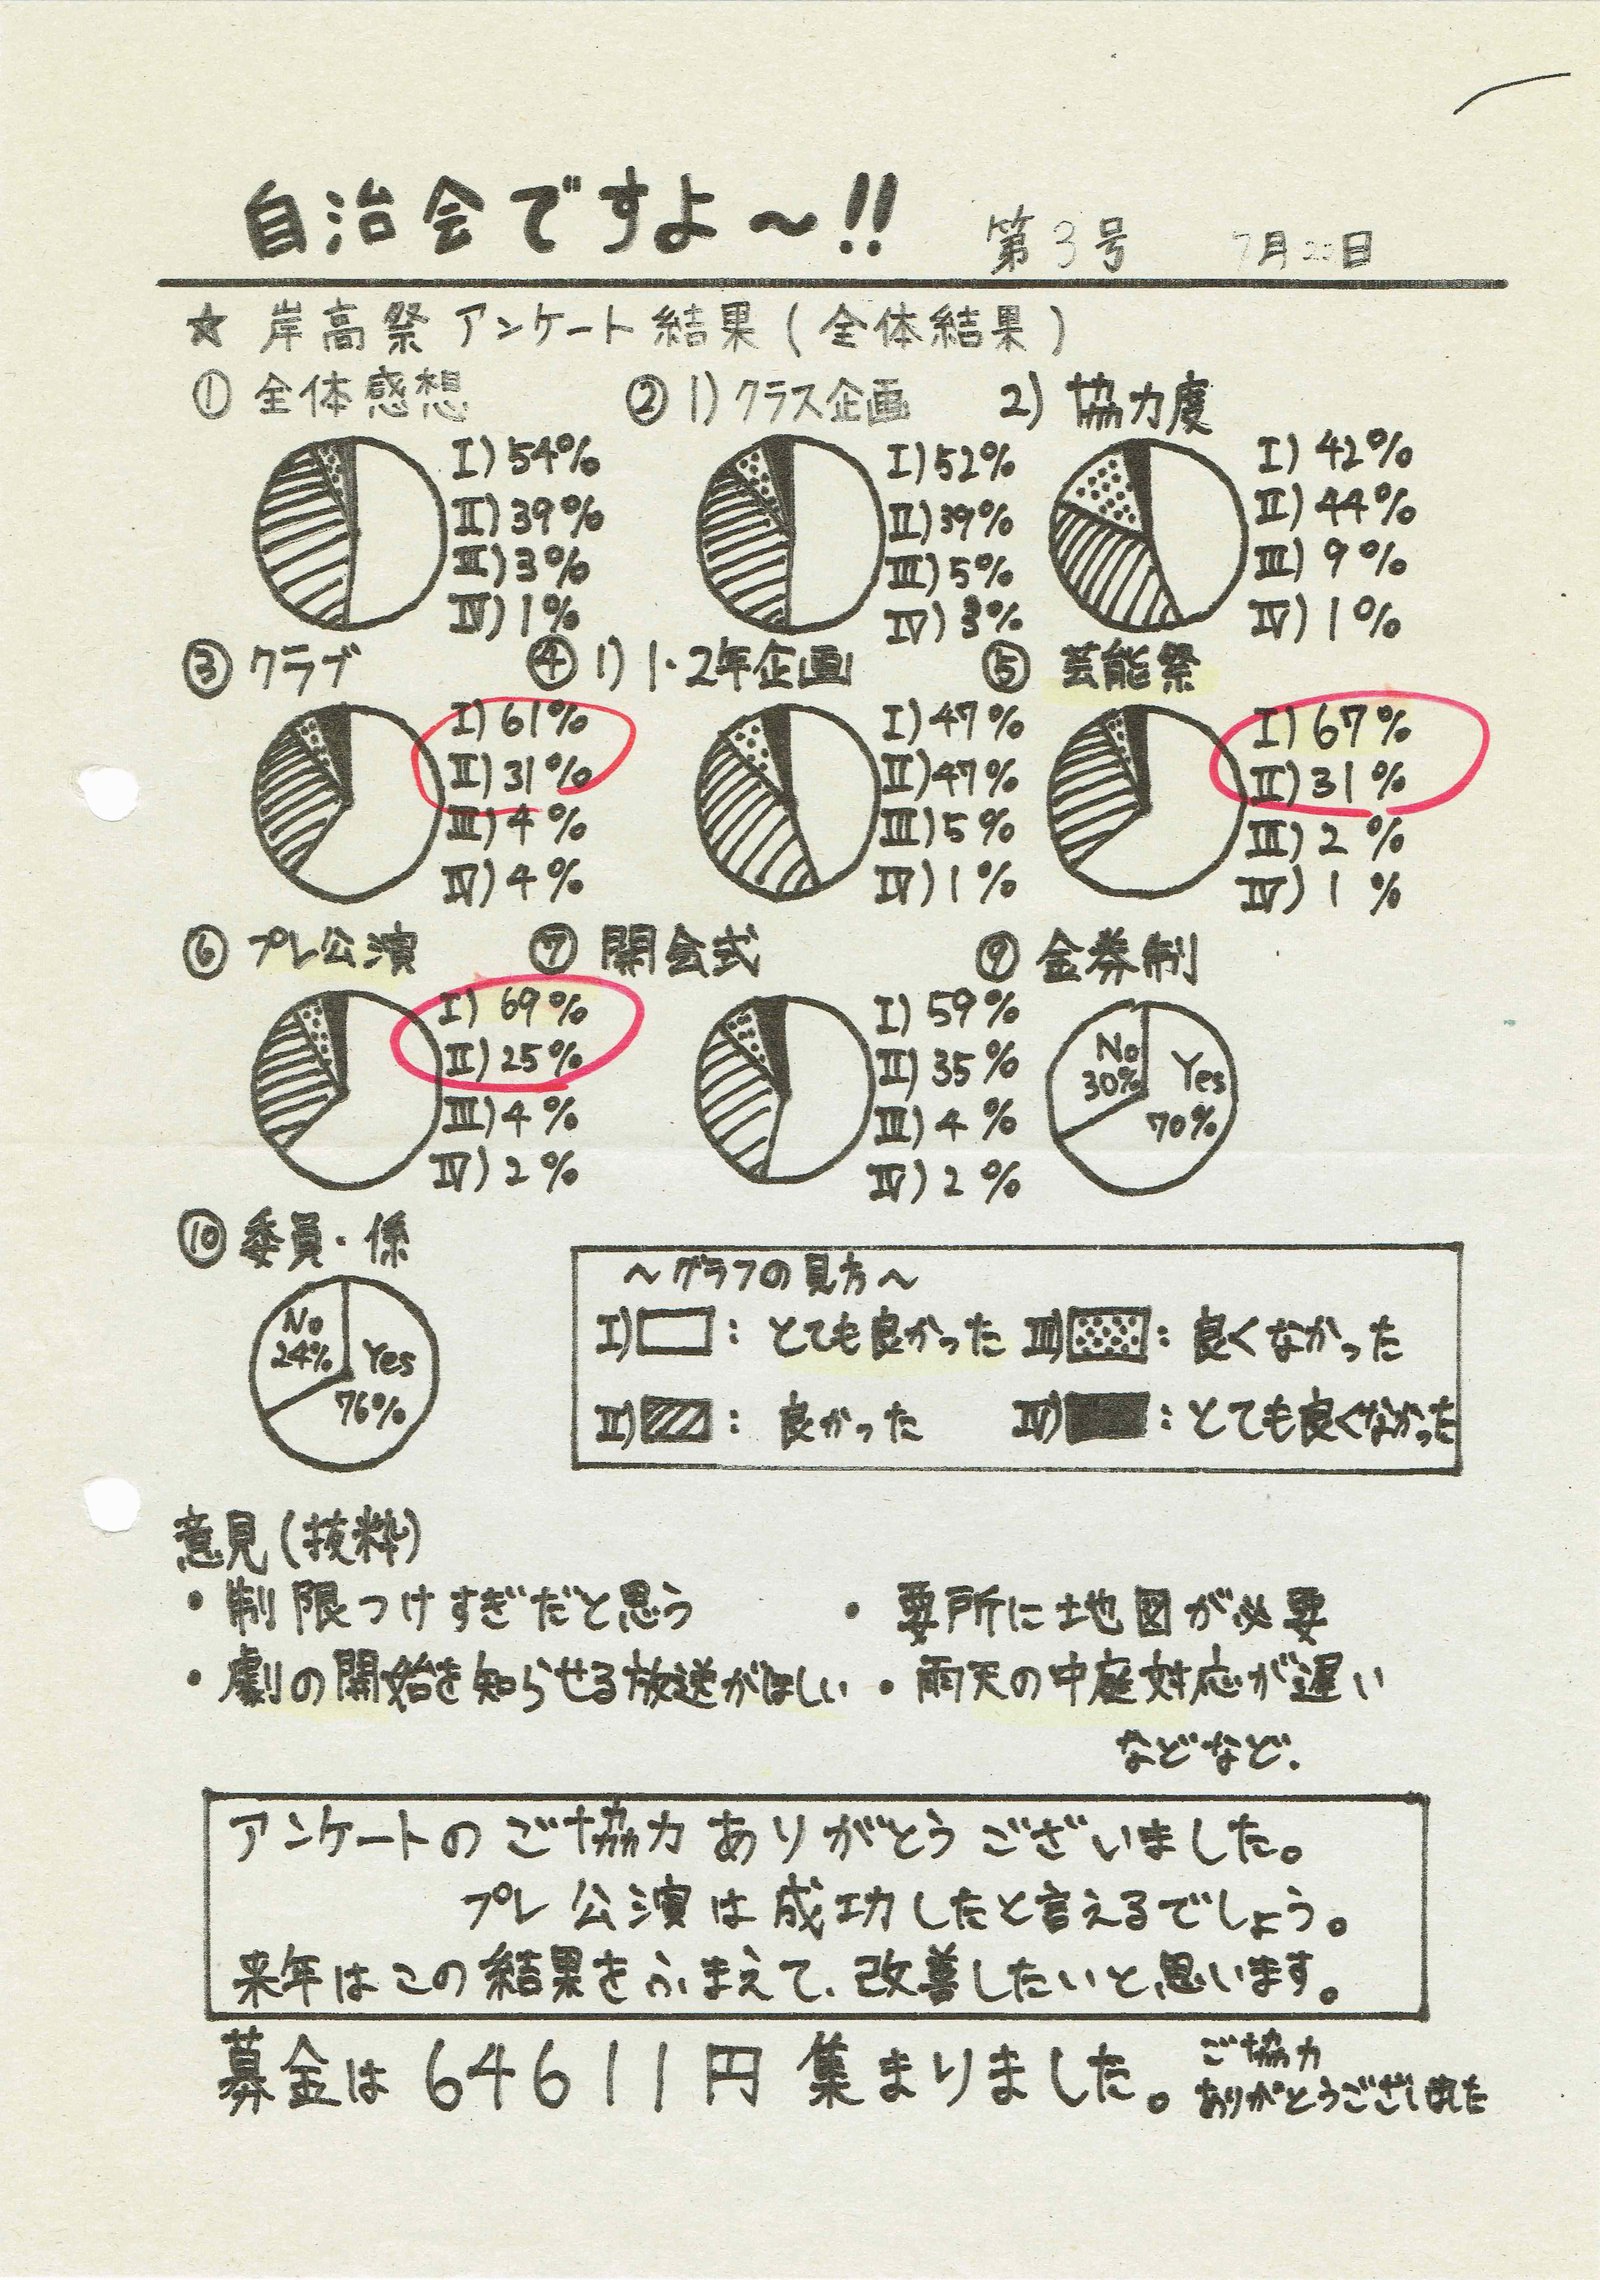 自治会ですよ～!! 第3号 7月20日
☆ 岸高祭アンケート結果(全体結果)
① 全体感想
I) 54%
II) 39%
III) 3%
IV) 1%
② 1) クラス企画
I) 52%
II) 39%
III) 5%
IV) 3%
2) 協力度
I) 42%
II) 44%
III) 9%
IV) 1%
③ クラブ
I) 61%
II) 31%
III) 4%
IV) 4%
④ 1) 1・2年企画
I) 47%
II) 47%
III) 5%
IV) 1%
⑤ 芸能祭
I) 67%
II) 31%
III) 2%
IV) 1%
⑥ プレ公演
I) 69%
II) 25%
III) 4%
IV) 2%
⑦ 開会式
I) 59%
II) 35%
III) 4%
IV) 2%
⑨ 金券制
No
30%
Yes
70%
⑩ 委員・係
No
24%
Yes
76%
～グラフの見方～
I) : とても良かった III) : 良くなかった
II) : 良かった IV) : とても良くなかった
意見(抜粋)
・制限つけすぎだと思う ・要所に地図が必要
・劇の開始を知らせる放送がほしい ・雨天の中庭対応が遅い
などなど.
アンケートのご協力ありがとうございました。
プレ公演は成功したと言えるでしょう。
来年はこの結果をふまえて、改善したいと思います。
募金は64611円 集まりました。
ご協力
ありがとうございました